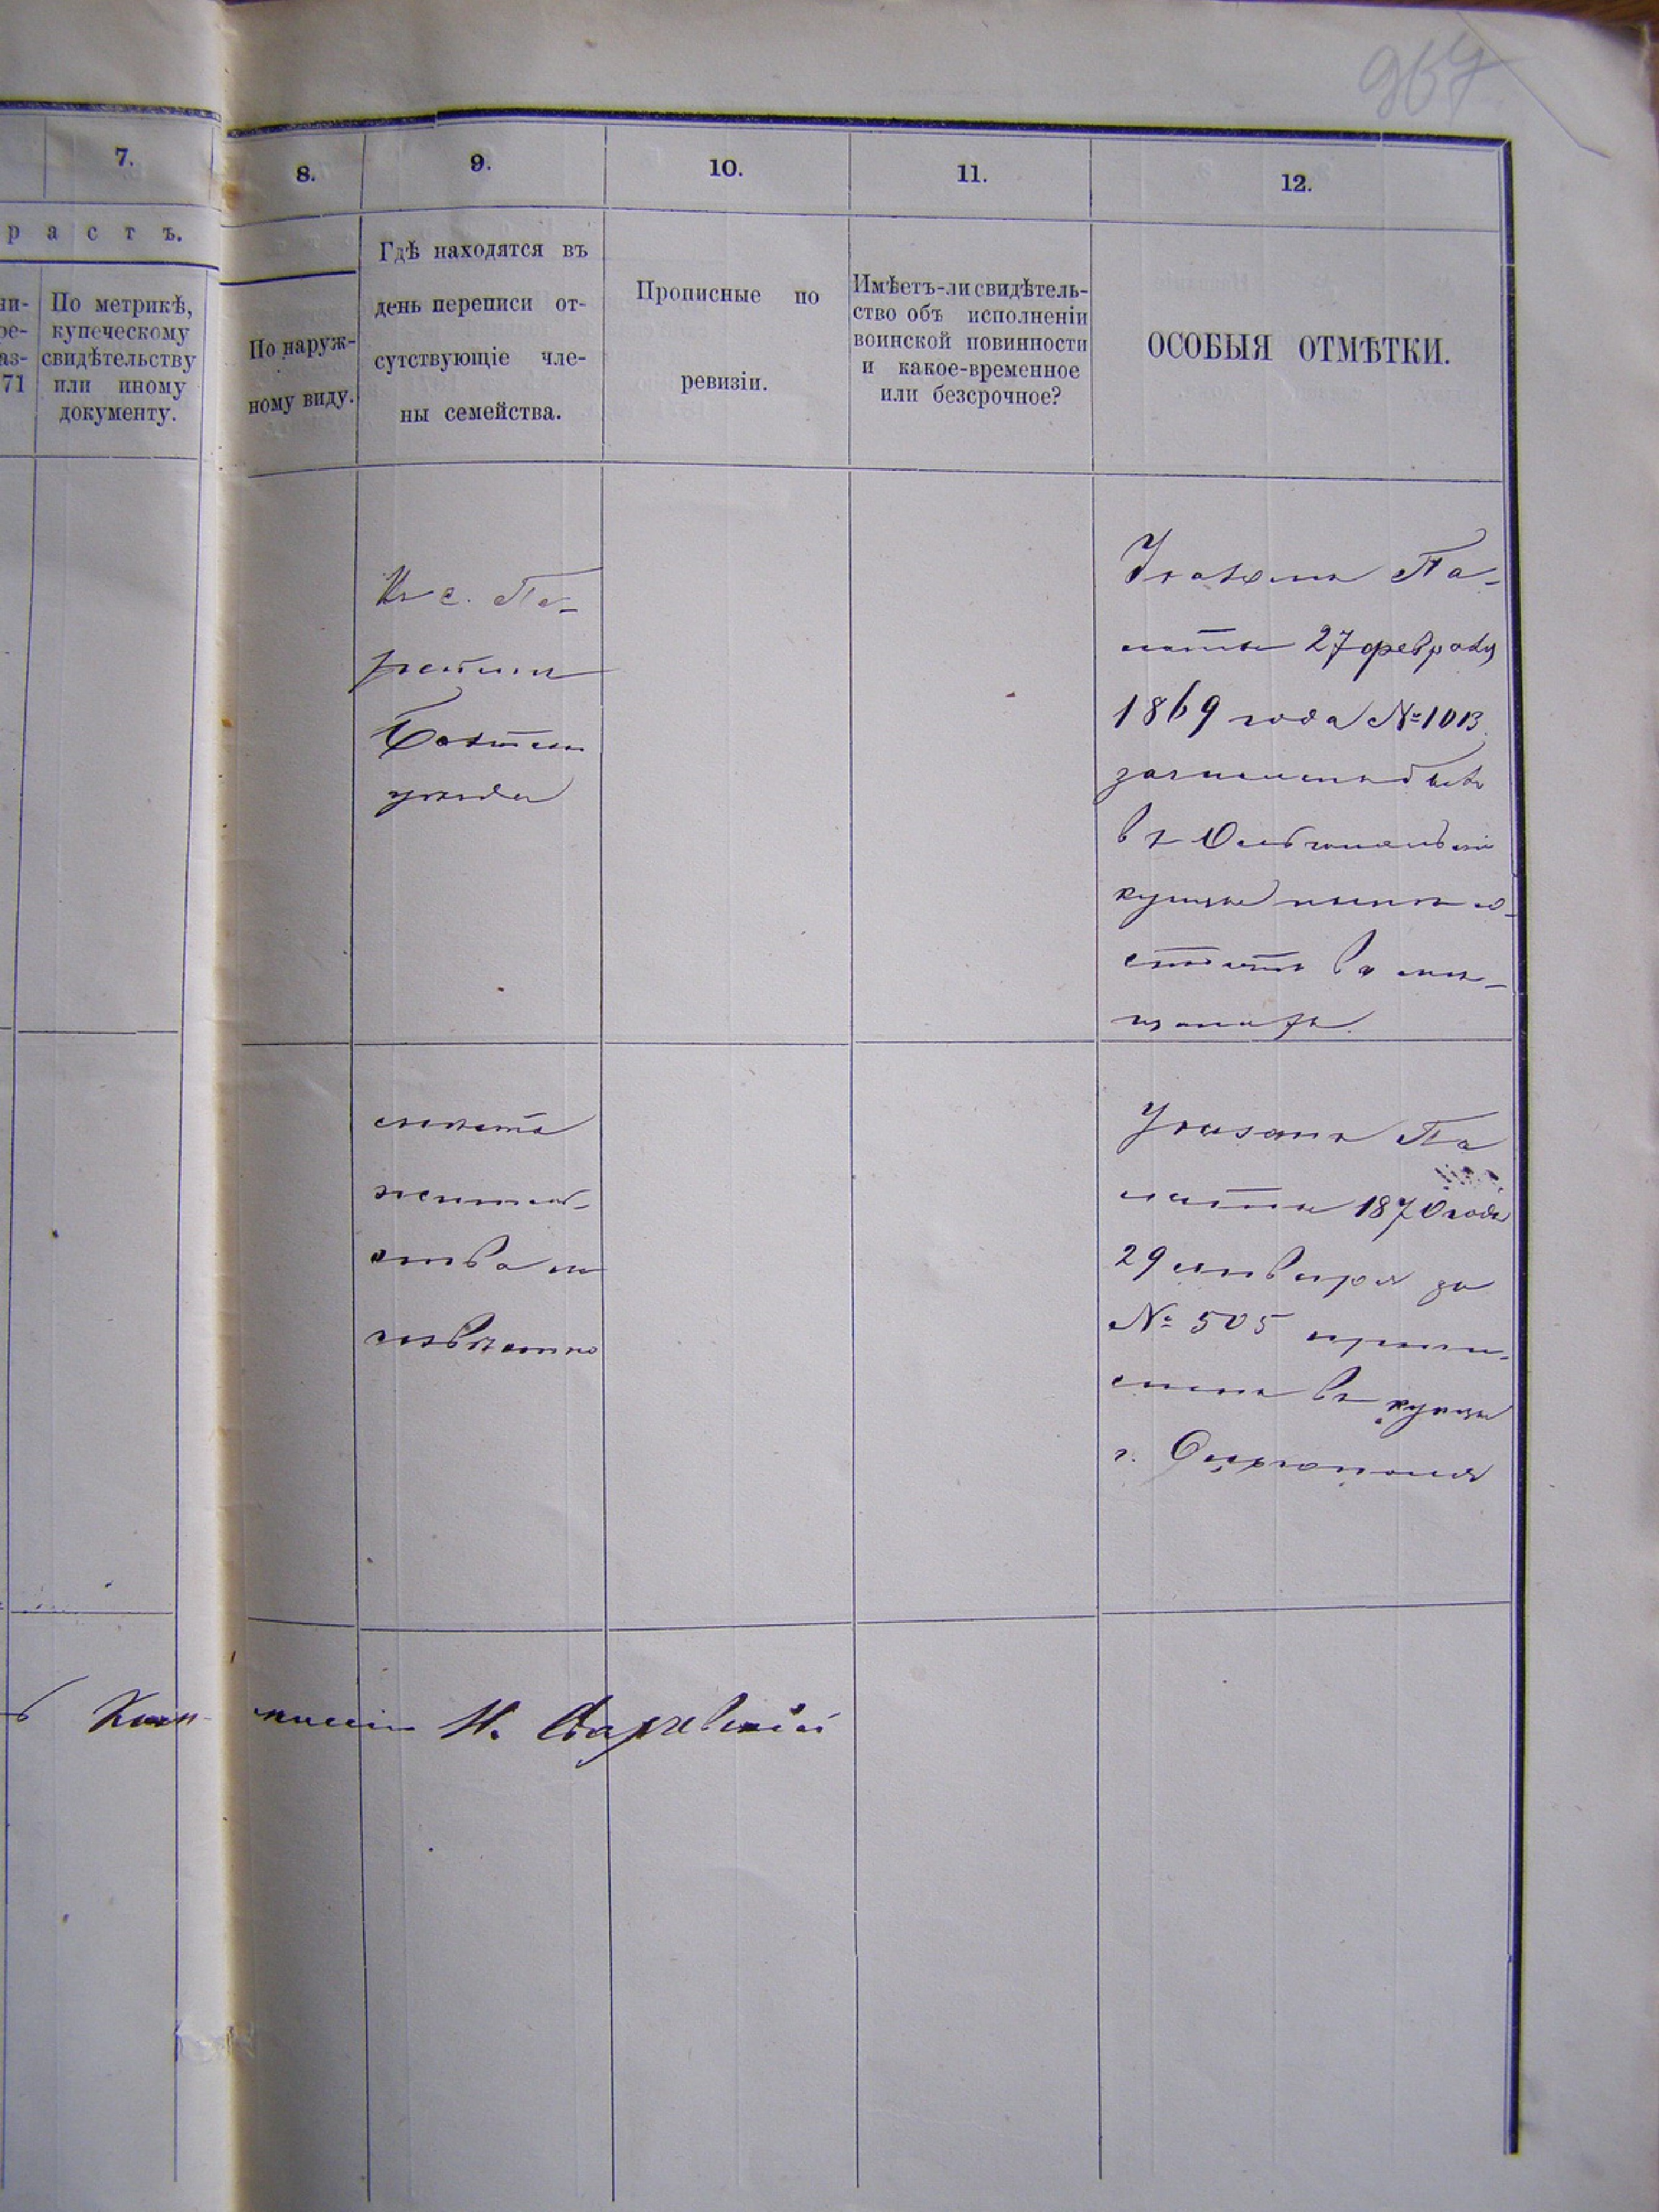 967
7.
8.
9.
10.
11.
12.
р а с т ъ.
По метрикѣ,
купеческому
свидѣтельству
или иному
документу.
71
По наруж-
ному виду.
Гдѣ находятся въ
день переписи от-
сутствующіе чле-
ны семейства.
Прописные по
ревизіи.
Имѣетъ-ли свидѣтель-
ство объ исполненіи
воинской повинности
и какое-временное
или безсрочное?
ОСОБЫЯ ОТМѢТКИ.
Въ с. Пе-
Балт
уѣзда
Указомъ Па-
латы 27 февраля
1869 года №1013
зачисленъ былъ
въ
купцы нынѣ со-
стоитъ въ мѣ-
щанахъ.
мѣсто
житель-
ства не
извѣстно
Указомъ Па
латы 1870 года
29 января за
№ 505 припи-
санъ въ купцы
г. Ольгополя
Ком-
мисіи Н.